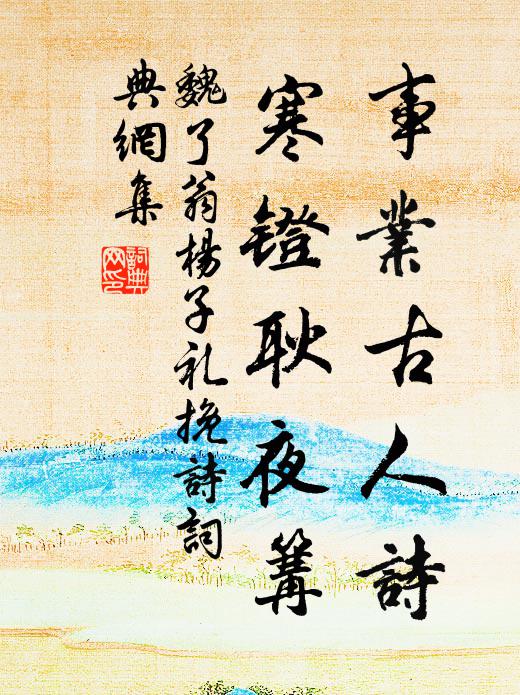 事業古人詩
寒鐙耿夜篝
魏了翁楊子礼挽詩詞
典網集
詞典網印